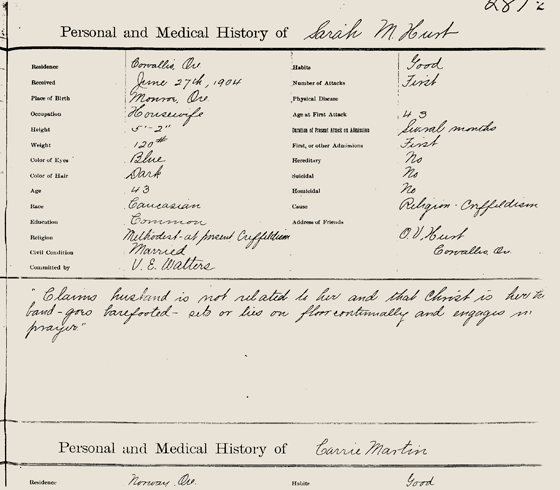 Personal and Medical History of Sarah M. Hurt
Residence Corvallis, Ore Habits Good
Received June 27th, 1904 Number of Attacks First
Place of Birth Monroe, Ore. Physical Disease
Occupation Housewife Age at First Attack 43
Height 5'-2" Duration of Present Attack on Admission Several months
Weight 120# First, or other Admissions First
Color of Eyes Blue Hereditary No
Color of Hair Dark Suicidal No
Age 43 Homicidal No
Race Caucasian Cause Religion - Creffieldism
Education Common Address of Friends
Religion Methodist - at present Creffieldism O.V. Hurt
Civil Condition Married Corvallis Or.
Committed by V. E. Watters
"Claims husband is not related to her and that Christ is her
band - goes barefooted - sets or lies on floor continually and engages in
prayer."
Personal and Medical History of Carrie Martin
Residence Norway, Ore. Habits Good